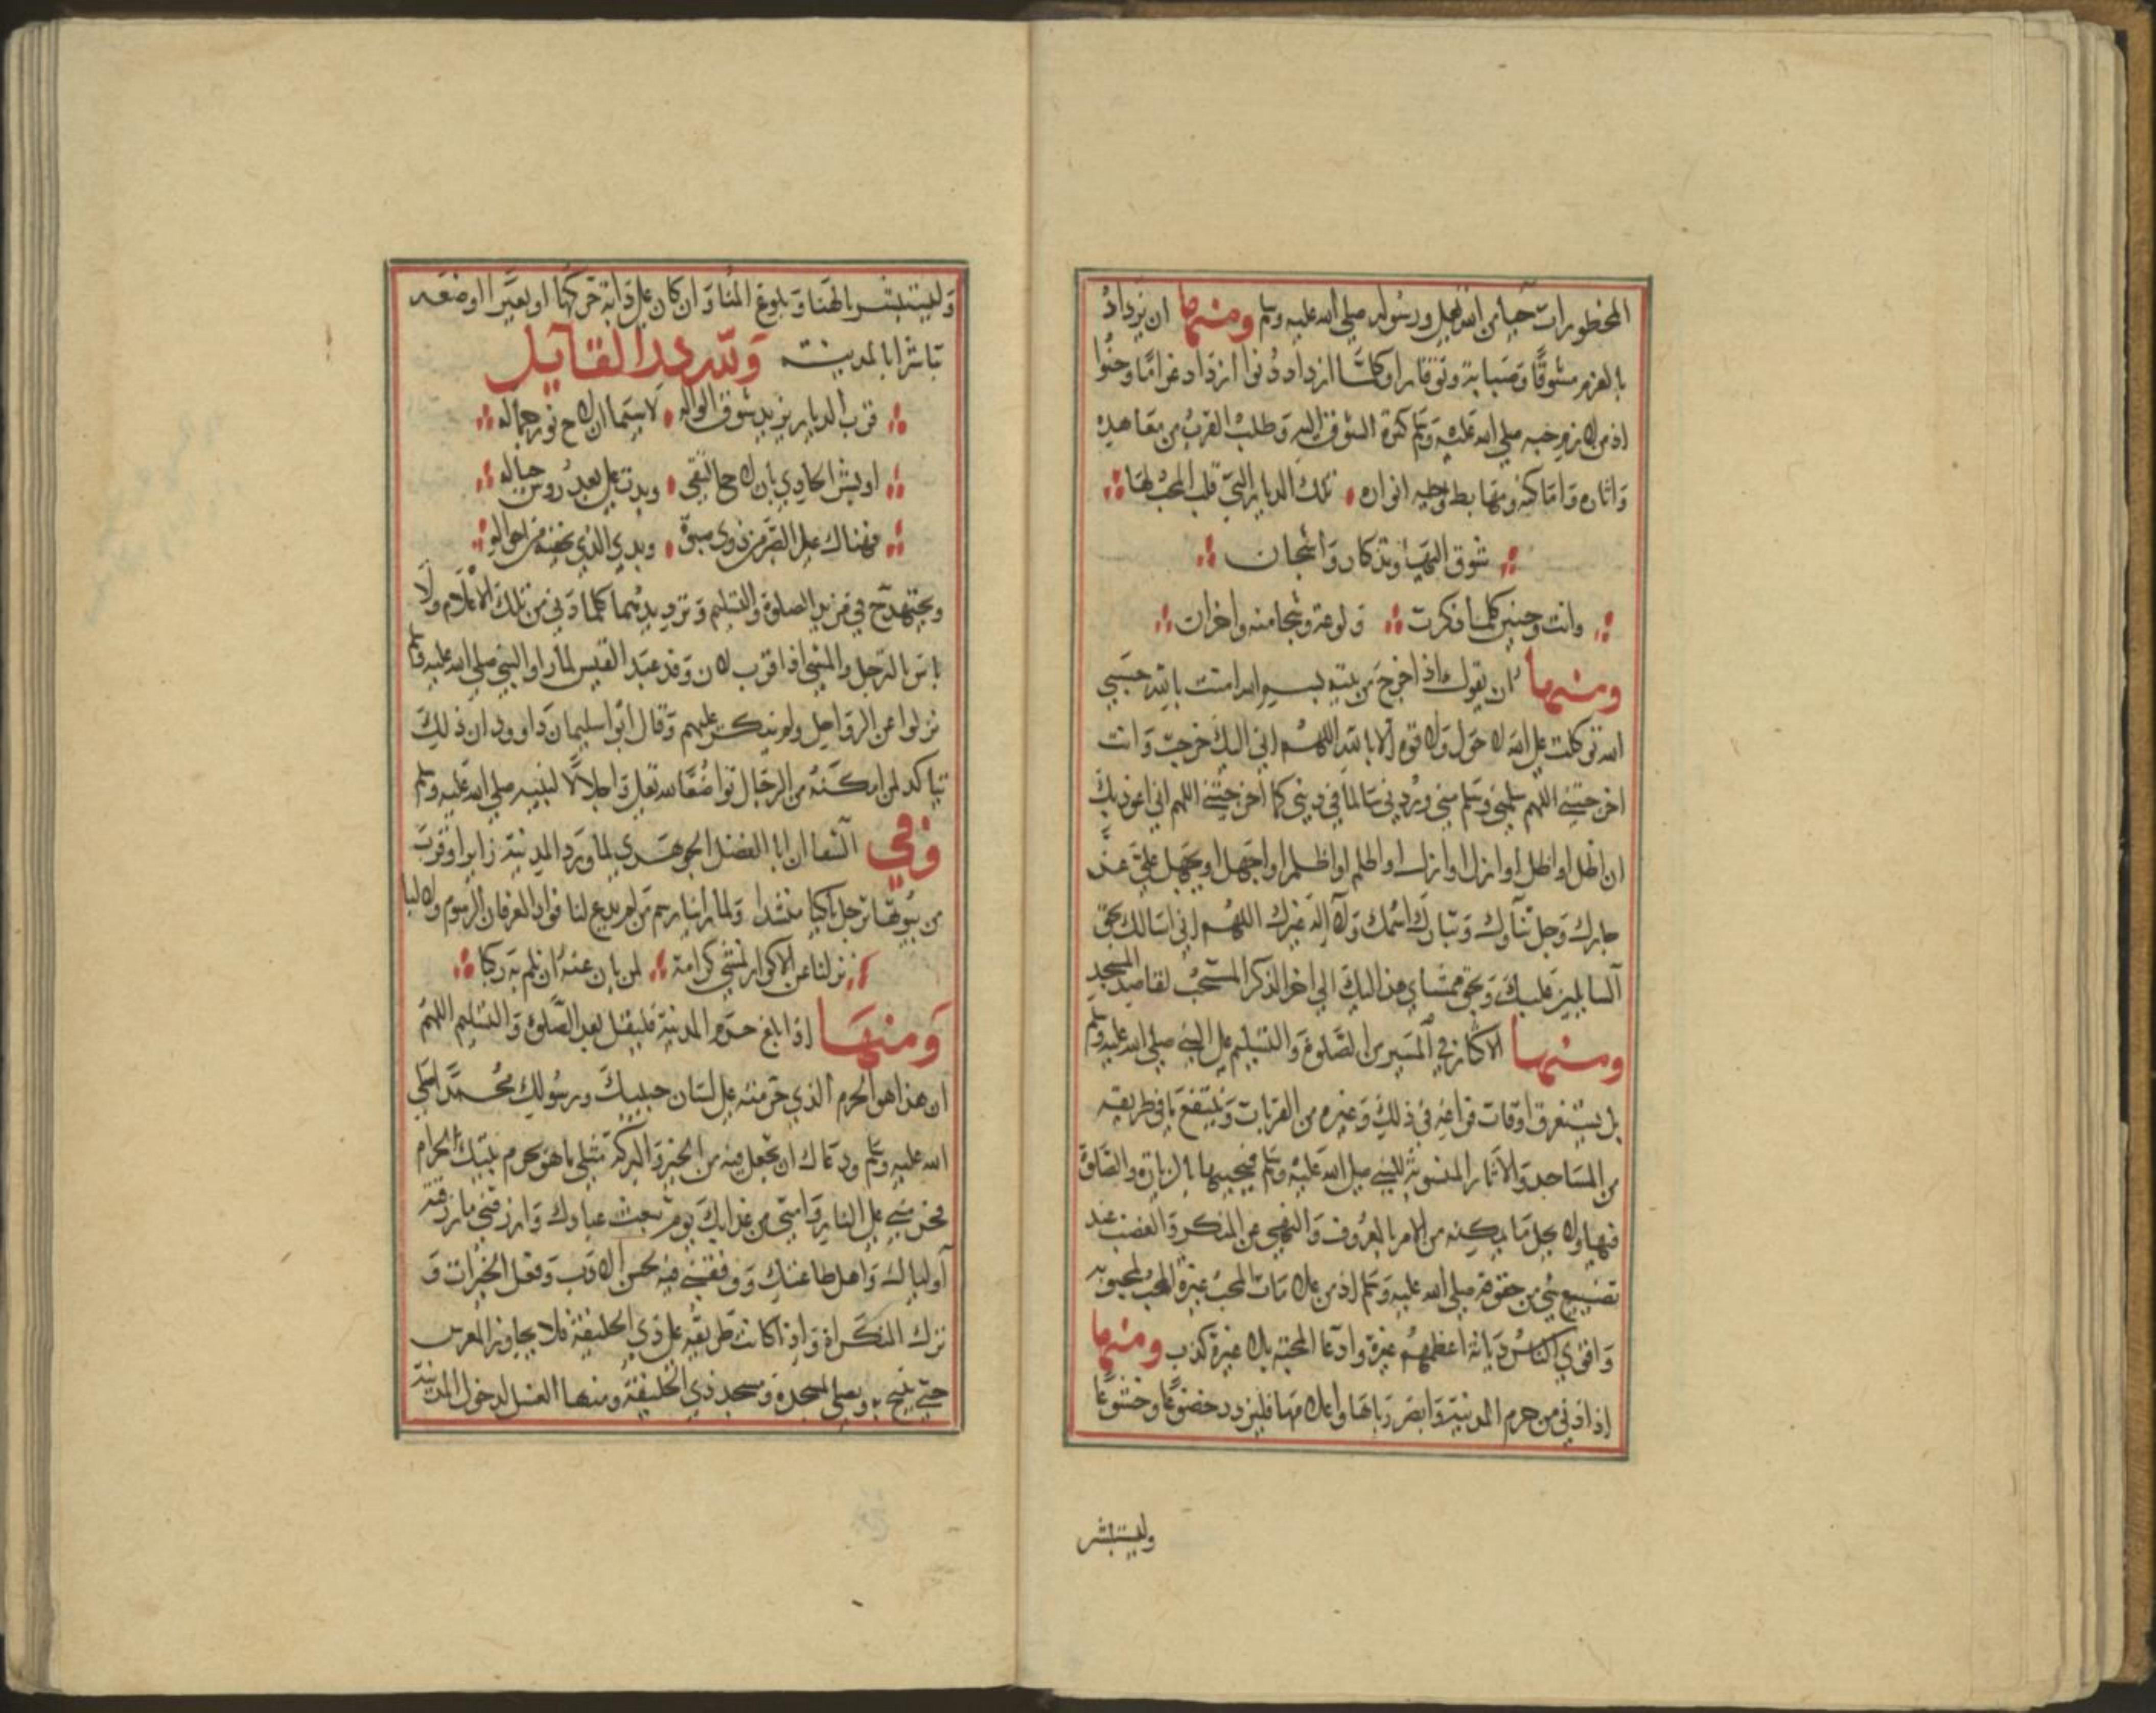 المحظورات حيا من الله تعالي ورسوله صلي الله عليه وسلم ومنها ان يزداد
بالعزم شوقا وصبابة وتوقا وكلما ازداد دنوا ازداد غراما وحنوا
اذ من لازم حبه صلي الله عليه وسلم كثرة الشوق اليه وطلب القرب من معاهده
واثاره واماكنه ومهابط وحيه انواره تلك الديار التي قلب المحب لها
شوق اليها وتذكار واشجان
وانت وحنين كلما ذكرت ولوعة وشجا منه واحزان
ومنها ان يقول اذا خرج من بيته بسم الله امنت بالله حسبي
الله توكلت علي الله لا حول ولا قوة الا بالله اللهم اني اليك خرجت وانت
اخرجتني اللهم سلمني وسلم مني وردني سالما في ديني كما اخرجتني اللهم اني اعوذ بك
ان اضل او اضل او ازل او ازل او اظلم او اظلم او اجهل او يجهل علي عز
جارك وجل ثناوك وتبارك اسمك ولا اله غيرك اللهم اني اسالك بحق
السايلين عليك وبحق ممشاي هذا اليك الي اخر الذكر المستحب لقاصد المسجد
ومنها الاكثار في المسير من الصلوة والتسليم علي النبي صلي الله عليه وسلم
بل يستغرق اوقات فراغه في ذلك وغيره من القربات ويتتبع ما في طريقه
من المساجد والاثار المنسوبة للنبي صلي الله عليه وسلم فيحييها بالزيارة والصلوة
فيها ولا يخل بما يمكنه من الامر بالمعروف والنهي عن المنكر والغضب عند
تضييع شي من حقوقه صلي الله عليه وسلم اذ من علامات المحب غيرة المحب لمحبوبه
واقوي الناس ديانة اعظمهم غيرة وادعا المحبة بلا غيرة كذب ومنها
اذا دني من حرم المدينة وابصر رباها واعلامها فليزدد خضوعا وخشوعا
وليستبشر
وليستبشر بالهنا وبلوغ المنا وان كان علي دابة حركها او بعيرا اوضعه
تباشرا بالمدينة ولله در القايل
قرب الديار يزيد شوق الواله لا سيما ان لاح نور جماله
او بشر الحادي بان لاح النقي وبدت علي بعد رووس جباله
فهناك عيل الصبر من ذوي صبوة وبدي الذي يخفيه من احواله
ويجتهد ح في مزيد الصلوة والتسليم وترديدهما كلما دني من تلك الاعلام ولا
باس بالترجل والمشي اذا قرب لان وفد عبد القيس لما راوا النبي صلي الله عليه وسلم
نزلوا عن الرواحل ولم ينكر عليهم وقال ابو اسليمان داوود ان ذلك
يتاكد لمن امكنه من الرجال تواضعا لله تعالي واجلالا لنبيه صلي الله عليه وسلم
وفي الشفا ان ابا الفضل الجوهري لما ورد المدينة زايرا وقرب
من بيوتها ترجل باكيا منشدا ولما راينا رسم من لم يدع لنا فوادا لعرفان الرسوم ولا لبا
نزلنا عن الاكوار نمشي كرامة لمن بان عنه ان نلم به ركبا
ومنها اذا بلغ حرم المدينة فليقل بعد الصلوة والتسليم اللهم
ان هذا هو الحرم الذي حرمته علي لسان حبيبك ورسولك محمد صلي
الله عليه وسلم ودعاك ان تجعل فيه من الخير والبركة مثلي ما هو بحرم بيتك الحرام
فحرمني علي النار وامني من عذابك يوم تبعث عبادك وارزقني ما رزقته
اولياك واهل طاعتك ووفقني فيه بحسن الادب وفعل الخيرات و
ترك المنكرات واذا كانت طريقه علي ذي الحليفة فلا يجاوز المعرس
حتي ينيخ به ويصلي بمسجده ومسجد ذي الحليفة ومنها الغسل لدخول المدينة